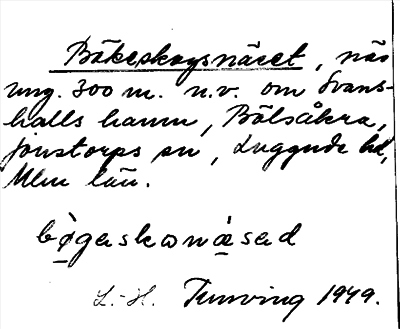 Bökeskogsnäset, näs
ung. 300 m. n.v. om Svans-
halls hamn, Bölsåkra,
Jonstorps sn, Luggude hd,
Mlm län.
bø̀gaskɷnæ̀sad
L.-H. Turving 1949.